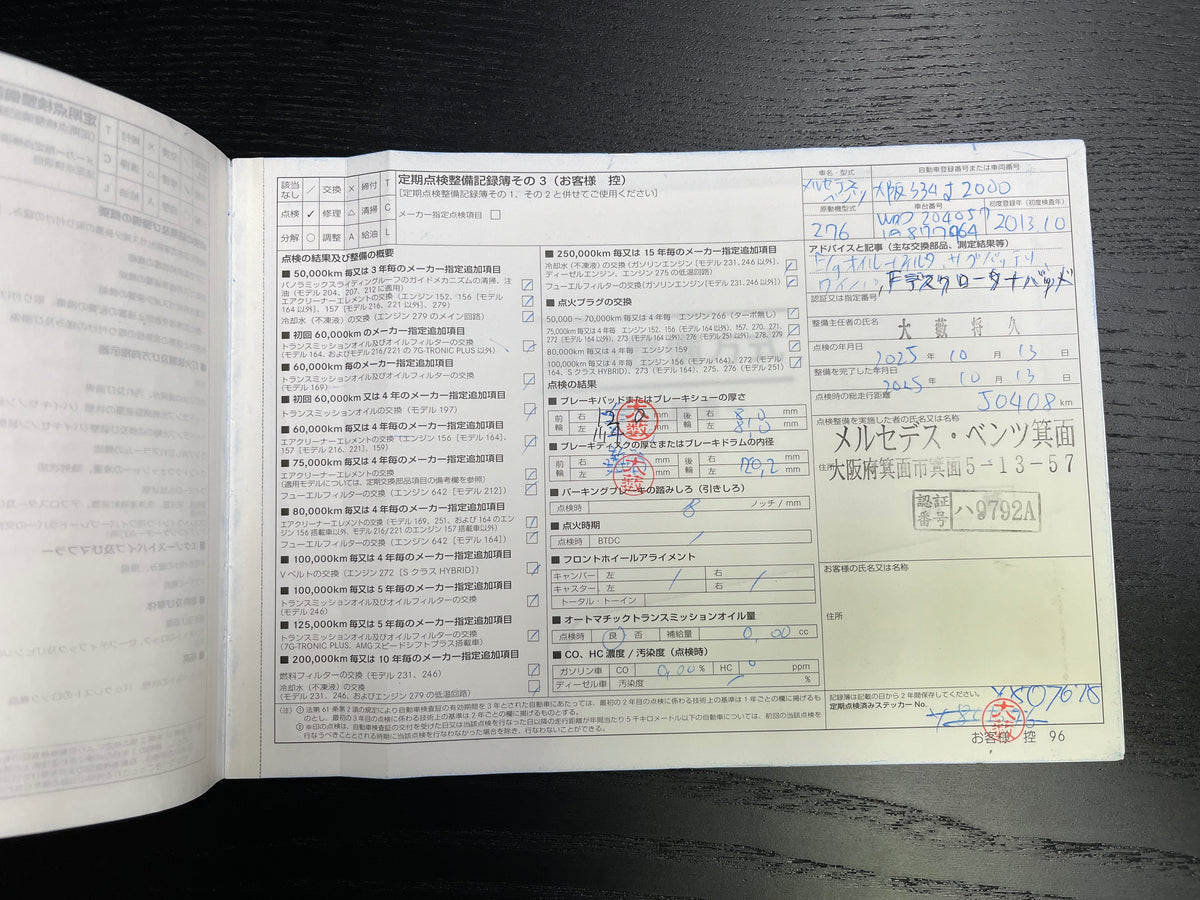 該当なし ／ 交換 × 締付 T
点検 ✓ 修理 △ 清掃 C
分解 ○ 調整 A 給油 L
定期点検整備記録簿その3（お客様 控）
［定期点検整備記録簿その1、その2と併せてご使用ください］
メーカー指定点検項目 □
点検の結果及び整備の概要
■ 50,000km 毎又は3年毎のメーカー指定追加項目
パノラミックスライディングルーフのガイドメカニズムの清掃、注
油（モデル 204、207、212 に適用）
エアクリーナーエレメントの交換（エンジン 152、156［モデル
164 以外］、157［モデル 216、221 以外］、279）
冷却水（不凍液）の交換（エンジン 279 のメイン回路）
■ 初回 60,000km のメーカー指定追加項目
トランスミッションオイル及びオイルフィルターの交換
（モデル 164、およびモデル 216/221 の 7G-TRONIC PLUS 以外）
■ 60,000km 毎のメーカー指定追加項目
トランスミッションオイル及びオイルフィルターの交換
（モデル 169）
■ 初回 60,000km 又は4年毎のメーカー指定追加項目
トランスミッションオイルの交換（モデル 197）
■ 60,000km 毎又は4年毎のメーカー指定追加項目
エアクリーナーエレメントの交換（エンジン 156［モデル 164］、
157［モデル 216、221］、159）
■ 75,000km 毎又は4年毎のメーカー指定追加項目
エアクリーナーエレメントの交換
（適用モデルについては、定期交換部品項目の備考欄を参照）
フューエルフィルターの交換（エンジン 642［モデル 212］）
■ 80,000km 毎又は4年毎のメーカー指定追加項目
エアクリーナーエレメントの交換（モデル 169、251、および 164 のエンジ
ン 156 搭載車以外、モデル 216/221 のエンジン 157 搭載車以外）
フューエルフィルターの交換（エンジン 642［モデル 164］）
■ 100,000km 毎又は4年毎のメーカー指定追加項目
Vベルトの交換（エンジン 272［SクラスHYBRID］）
■ 100,000km 毎又は5年毎のメーカー指定追加項目
トランスミッションオイル及びオイルフィルターの交換
（モデル 246）
■ 125,000km 毎又は5年毎のメーカー指定追加項目
トランスミッションオイル及びオイルフィルターの交換
（7G-TRONIC PLUS、AMG スピードシフトプラス搭載車）
■ 200,000km 毎又は10年毎のメーカー指定追加項目
燃料フィルターの交換（モデル 231、246）
冷却水（不凍液）の交換
（モデル 231、246、およびエンジン 279 の低温回路）
■ 250,000km 毎又は15年毎のメーカー指定追加項目
冷却水（不凍液）の交換（ガソリンエンジン［モデル 231、246 以外］、
ディーゼルエンジン、エンジン 275 の低温回路）
フューエルフィルターの交換（ガソリンエンジン［モデル 231、246 以外］）
■ 点火プラグの交換
50,000 ～ 70,000km 又は4年毎 エンジン 266（ターボ無し）
75,000km 又は4年毎 エンジン 152、156（モデル 164 以外）、157、270、271、
272（モデル 164 以外）、273（モデル 164 以外）、276（モデル 251 以外）、278、279
80,000km 又は4年毎 エンジン 159
100,000km 又は4年毎 エンジン 156（モデル 164）、272（モデル
164、SクラスHYBRID）、273（モデル 164）、275、276（モデル 251）
点検の結果
■ ブレーキパッドまたはブレーキシューの厚さ
前輪 右 mm 後輪 右 8.0 mm
左 mm 左 8.0 mm
■ ブレーキディスクの厚さまたはブレーキドラムの内径
前輪 右 mm 後輪 右 mm
左 mm 左 20.2 mm
大藪
大藪
■ パーキングブレーキの踏みしろ（引きしろ）
点検時 8 ノッチ / mm
■ 点火時期
点検時 BTDC ／
■ フロントホイールアライメント
キャンバー 左 ／ 右 ／
キャスター 左 右
トータル・トーイン
■ オートマチックトランスミッションオイル量
点検時 良 否 補給量 0.00 cc
■ CO、HC 濃度 / 汚染度（点検時）
ガソリン車 CO 0.00 % HC 0 ppm
ディーゼル車 汚染度 ／ %
（注）① 法第 61 条第 2 項の規定により自動車検査証の有効期間を3年とされた自動車にあたっては、最初の2年目の点検に係わる技術上の基準は1年ごとの欄に掲げるも
のとし、最初の3年目の点検に係わる技術上の基準は2年ごとの欄に掲げるものとする。
② ※印の点検は、自動車検査証の交付を受けた日又は当該点検を行なった日以降の走行距離が年間当たり5千キロメートル以下の自動車については、前回の当該点検を
行なうべきこととされる時期に当該点検を行なわなかった場合を除き、行なわないことができる。
車名・型式
メルセデス
ベンツ
自動車登録番号または車両番号
大阪 334 す 2000
原動機型式
276
車台番号
WDD 204057
初度登録年（初度検査年）
2013.10
アドバイスと記事（主な交換部品、測定結果等）
E/gオイルオイルフィルタ サブバッテリ
ワイパ F デスクロータナパッド
認証又は指定番号
整備主任者の氏名 大藪将久
点検の年月日
2025 年 10 月 13 日
整備を完了した年月日
2025 年 10 月 13 日
点検時の総走行距離
50408 km
点検整備を実施した者の氏名又は名称
メルセデス・ベンツ箕面
住所
大阪府箕面市箕面5-13-57
認証番号 ハ9792A
お客様の氏名又は名称
住所
記録簿は記載の日から2年間保存してください。
定期点検済みステッカー No.
大藪
お客様 控 96